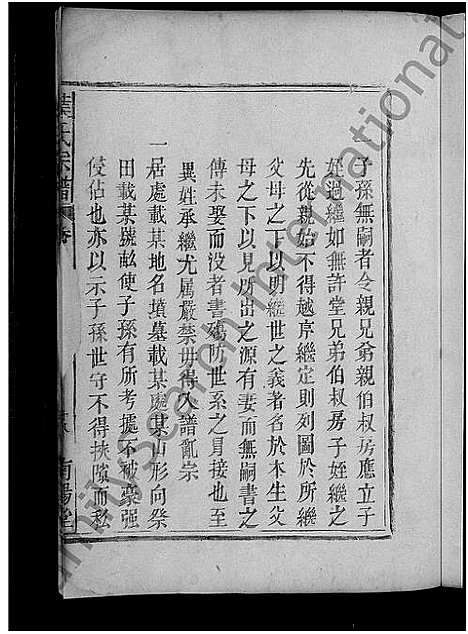 一子孫無嗣者令親兄弟親伯叔房應立子
姪過繼如無許堂兄弟伯叔房子姪繼之
先從親始不得越序繼定則列圖於所繼
父母之下以明繼世之義著名於本生父
母之下以見所出之源有妻而無嗣書之
傳未娶而没者書殤防世系之冐接也至
異姓承繼尤属嚴禁毋得入譜亂宗
一居處載某地名墳墓載某處某山形向祭
田載某號畝使子孫有所考據不被豪强
侵佔也亦以示子孫世守不得挾隙而私
氏宗譜
南陽堂
FamilySearch International